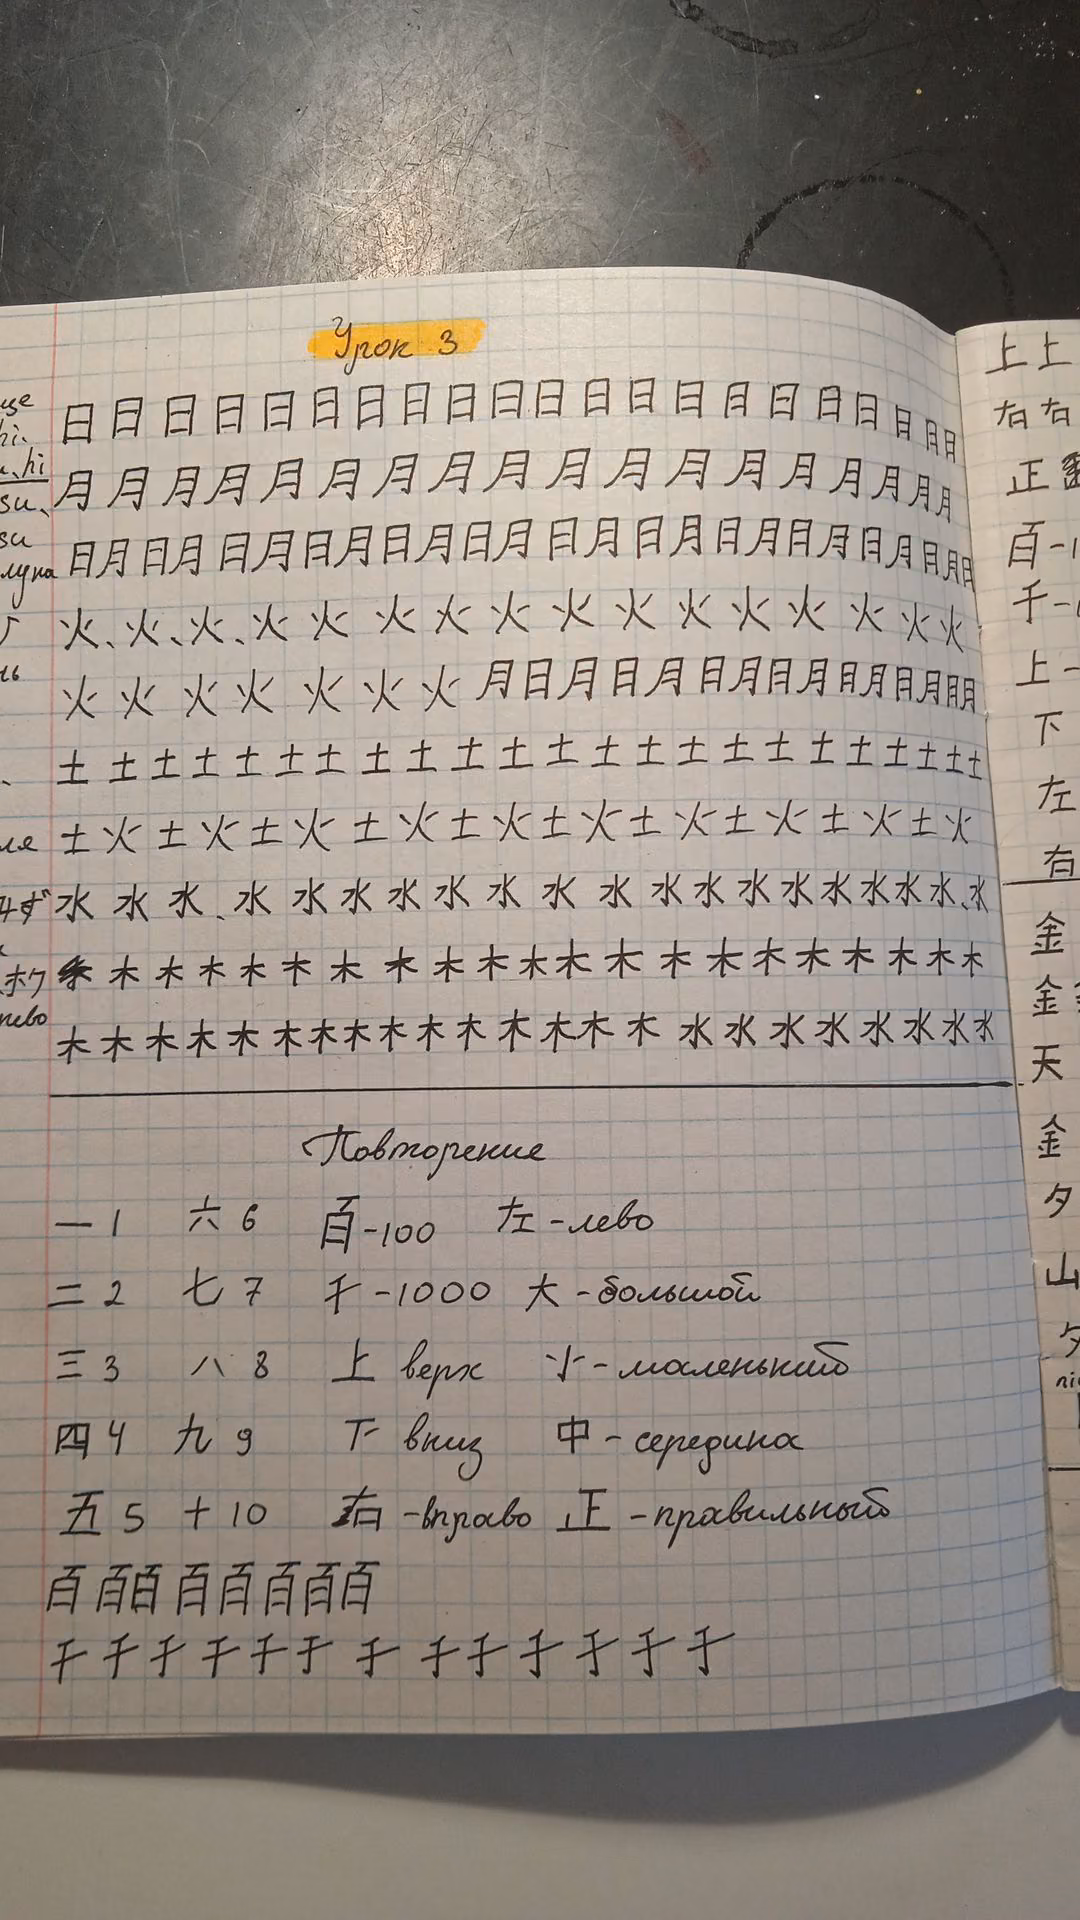 Урок 3
日 日 日 日 日 日 日 日 日 日 日 日 日 日 日 日 日 日 日 日 日
月 月 月 月 月 月 月 月 月 月 月 月 月 月 月 月 月 月
日月 日月 日月 日月 日月 日月 日月 日月 日月 日月 日月 日月 日
火、火、火、火 火 火 火 火 火 火 火 火 火 火 火 火
火 火 火 火 火 火 火 月 日 月 日 月 日 月 日 月 日 月 日 月 日 月
土 土 土 土 土 土 土 土 土 土 土 土 土 土 土 土 土 土 土 土 土 土
土 火 土 火 土 火 土 火 土 火 土 火 土 火 土 火 土 火 土 火
水 水 水、水 水 水 水 水 水 水 水 水 水 水 水 水 水 水 水、水
木 木 木 木 木 木 木 木 木 木 木 木 木 木 木 木 木 木 木
木 木 木 木 木 木 木 木 木 木 木 木 木 木 木 水 水 水 水 水 水 水 水
Повторение
一 1 六 6 百-100 左-лево
二 2 七 7 千-1000 大-большой
三 3 八 8 上 верх 小-маленький
四 4 九 9 下 вниз 中-середина
五 5 十 10 右-вправо 正-правильный
百 百百 百 百 百 百百
千 千 千 千 千 千 千 千 千 千 千 千 千
上上
右右
正
百-1
千-
上-
下
左
有
金
金
天
金
夕
山
夕